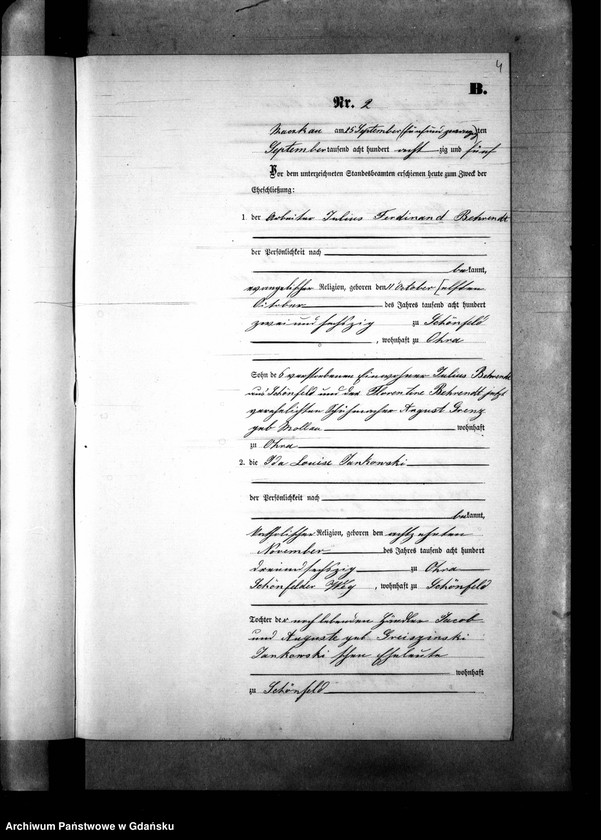 4
B.
Nr. 2
am 25 September (fünfundzwanzig)ten
September tausend acht hundert acht zig und fünf
Vor dem unterzeichneten Standesbeamten erschienen heute zum Zweck der
Eheschließung:
1. der Arbeiter Julius Ferdinand Behrendt
der Persönlichkeit nach
bekannt,
evangelischer Religion, geboren den 11 October [elften
October des Jahres tausend acht hundert
zwei und sechszig zu Schönfeld
, wohnhaft zu Ohra
Sohn des verstorbenen Einwohner Julius Behrendt
aus Schönfeld und der Florentine Behrendt jetzt
verehelichten Schuhmacher August Grenz
geb Mollau wohnhaft
zu Ohra
2. die Ida Louise Jankowski
der Persönlichkeit nach
bekannt,
katholischer Religion, geboren den achtzehnten
November des Jahres tausend acht hundert
dreiundsechszig zu Ohra
Schönfelder Weg, wohnhaft zu Schönfeld
Tochter der noch lebenden Händler Jacob
und Auguste geb
Jankowski schen Eheleute
wohnhaft
zu Schönfeld
Archiwum Państwowe w Gdańsku